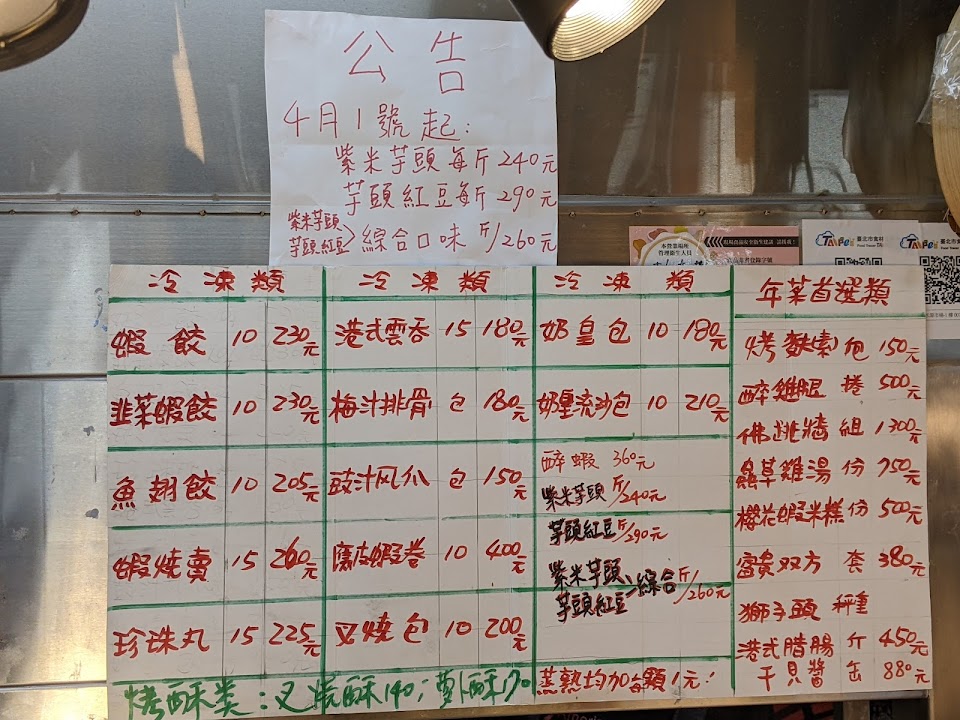 公告
4月1號起:
紫米芋頭每斤240元
芋頭紅豆每斤290元
紫米芋頭
芋頭紅豆>綜合口味斤/260元
冷凍類
蝦餃 10 230元
韭菜蝦餃 10 230元
魚翅餃 10 205元
蝦燒賣 15 260元
珍珠丸 15 225元
冷凍類
港式雲吞 15 180元
梅汁排骨 包 180元
豉汁风爪 包 150元
腐皮蝦卷 10 400元
叉燒包 10 200元
冷凍類
奶皇包 10 180元
奶皇流沙包 10 210元
醉蝦 360元
紫米芋頭斤/240元
芋頭紅豆斤/290元
紫米芋頭
芋頭紅豆>綜合斤/260元
年菜首選類
烤麩素 包 150元
醉雞腿 捲 500元
佛跳牆 組 1300元
蟲草雞湯 份 750元
櫻花蝦米糕 份 500元
富貴双方 套 380元
獅子頭 秤重
港式腊腸 斤 450元
干貝醬 缶 880元
烤酥类:叉燒酥140;蘿卜酥170
蒸熟均加每顆1元!
本營業場所
管理衛生人員
TAIPEI 臺北市食材
TAIPEI